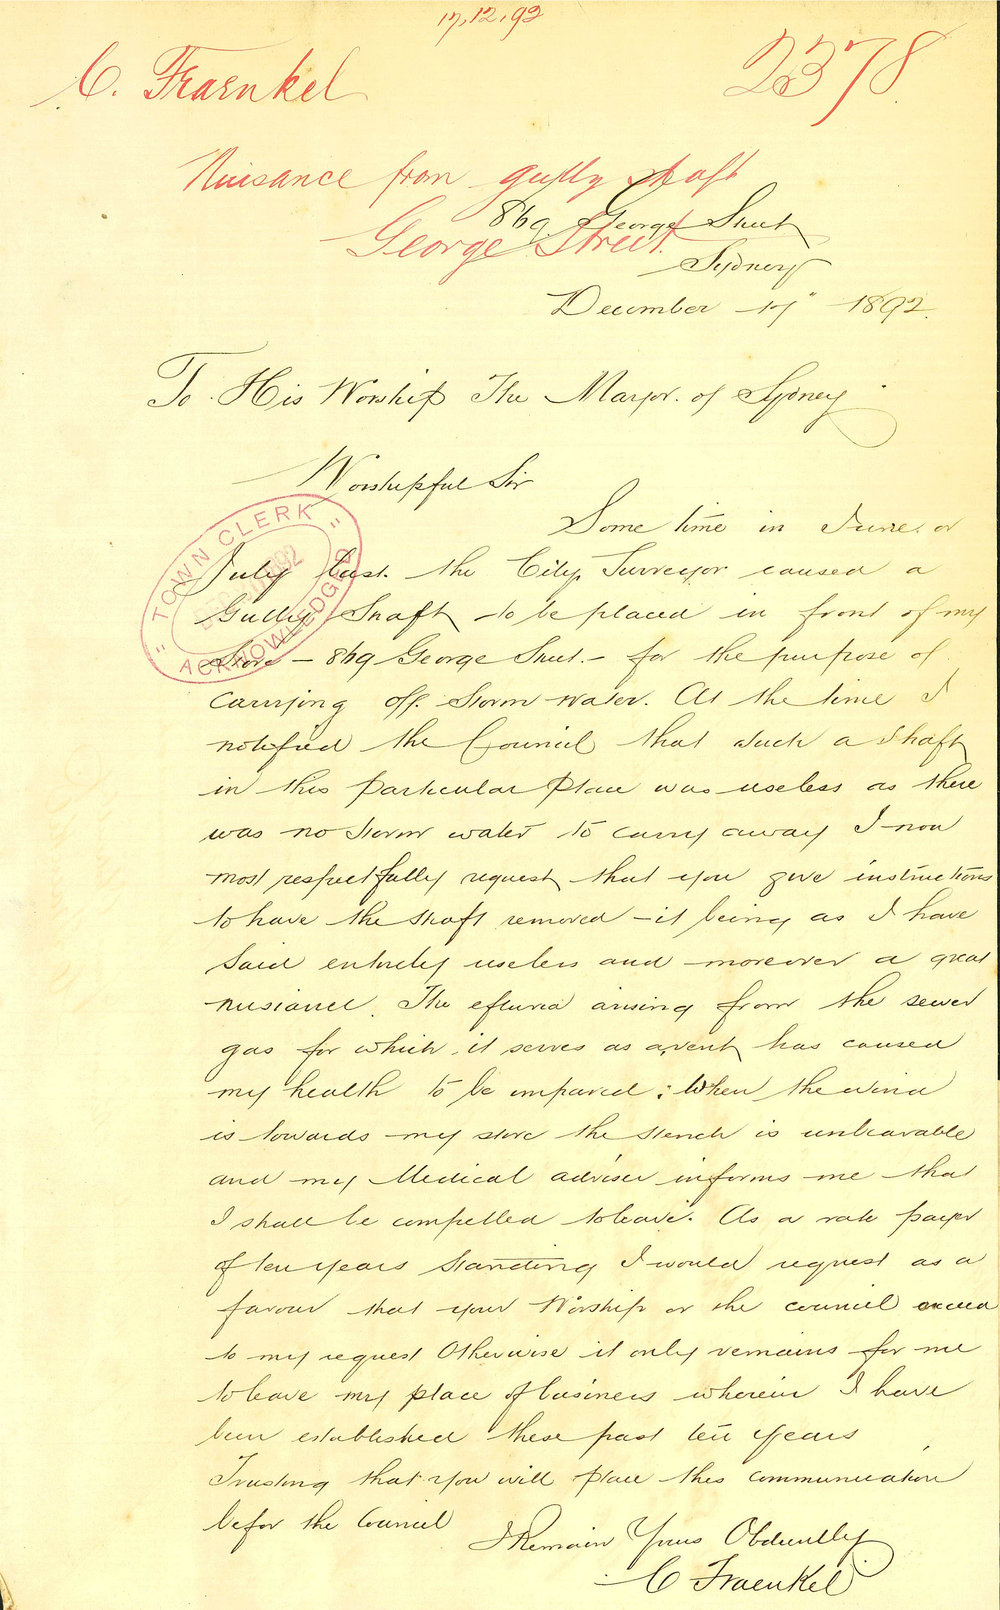 17,12,92
C. Fraenkel
2378
Nuisance from gully shaft
George Street
869 George Street
Sydney
December 17" 1892.
To His Worship The Mayor. of Sydney
Worshipful Sir
Some time in June. or
July last. the City Surveyor caused a
Gully Shaft to be placed in front of my
Store – 869 George Street. – for the purpose of
carrying off Storm water. At the time I
notified the Council that such a shaft
in this particular place was useless as there
was no storm water to carry away I now
most respectfully request that you give instructions
to have the shaft removed – it being as I have
said entirely useless and moreover a great
nusiance. The efluvia arising from the sewer
gas for which it serves as a vent has caused
my health to be impared; When the wind
is towards my store the stench is unbearable
and my Medical adviser informs me that
I shall be compelled to leave. As a rate payer
of ten years standing I would request as a
favour that your Worship or the council
to my request Otherwise it only remains for me
to leave my place of business wherein I have
been established these past ten years
Trusting that you will place this communication
befor the Council
I Remain Yours Obdiently
C Fraenkel
TOWN CLERK
ACKNOWLEDGED